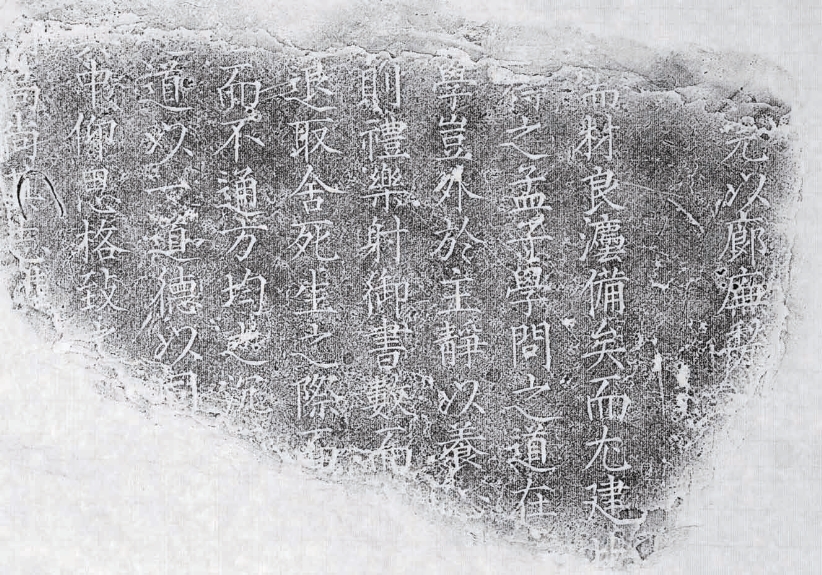 完以廊廡
材良灋備矣而尤建
待之孟子學問之道在
學豈外於主靜以養
則禮樂射御書數而
退取舍死生之際而
而不通方均之沉
道以一道德以同
事仰思格致
尚